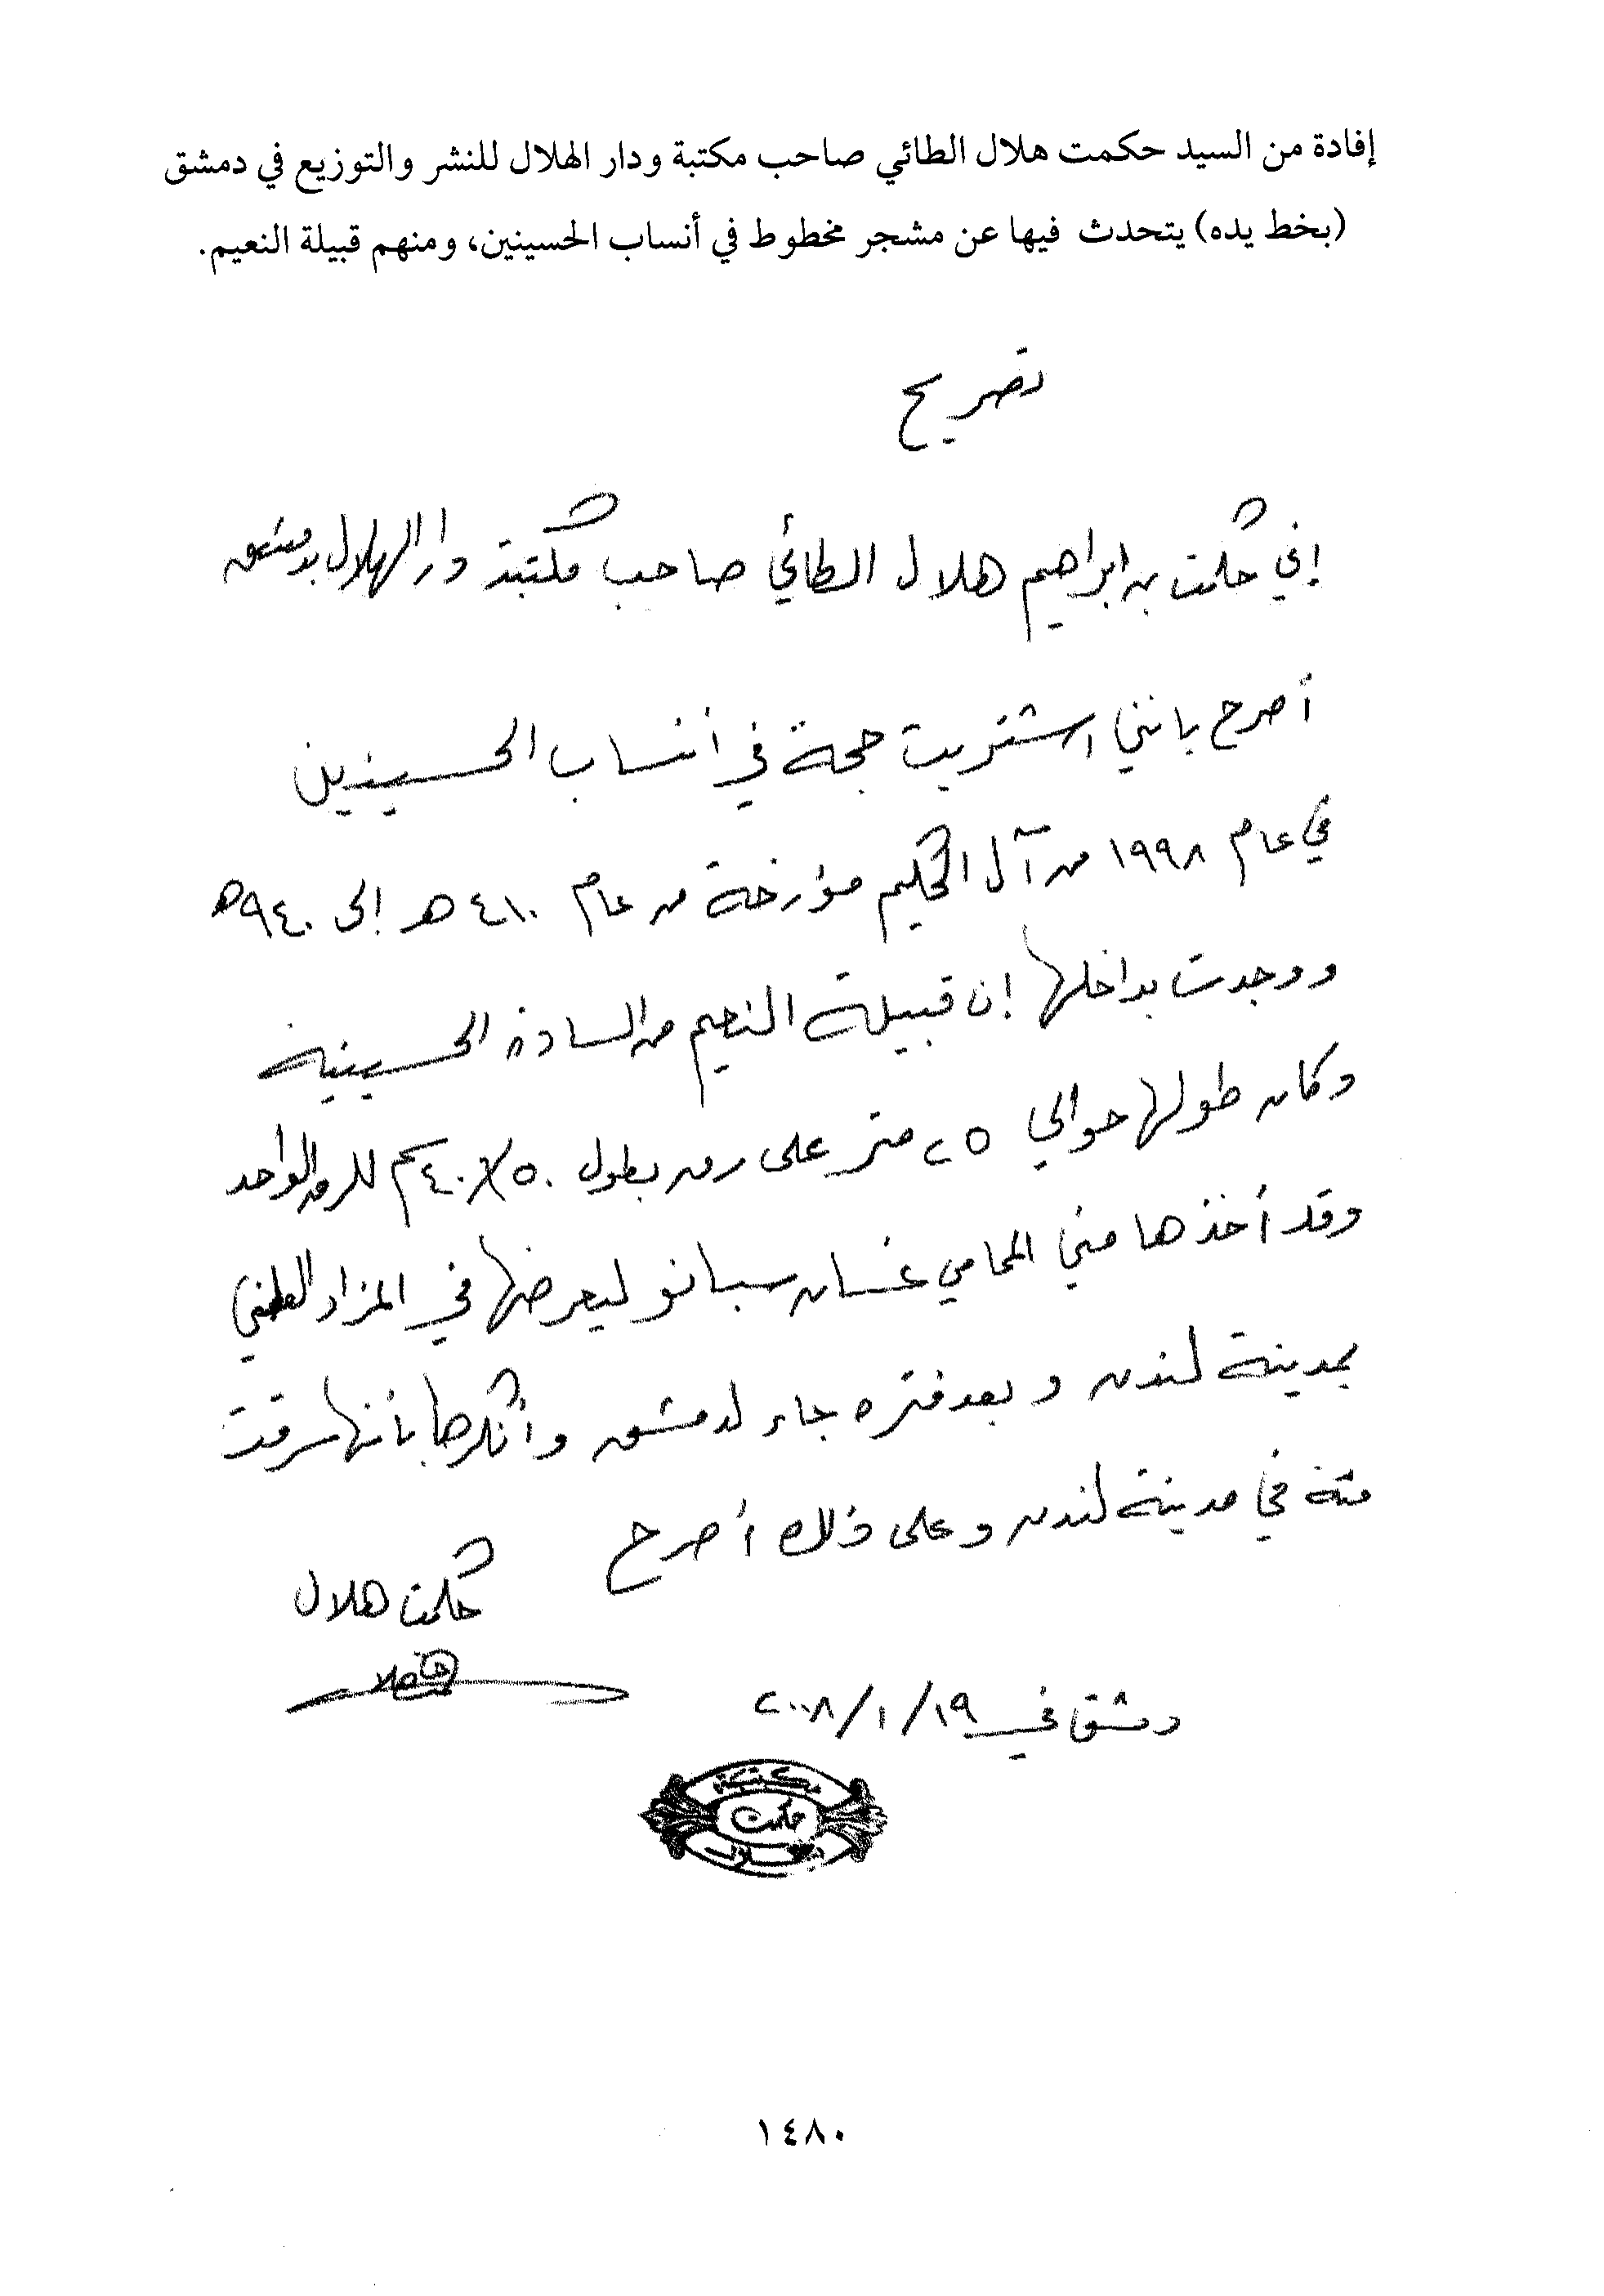 إفادة من السيد حكمت هلال الطائي صاحب مكتبة ودار الهلال للنشر والتوزيع في دمشق
(بخط يده) يتحدث فيها عن مشجر مخطوط في أنساب الحسينين، ومنهم قبيلة النعيم.
تصريح
إني حكمت بن ابراهيم هلال الطائي صاحب مكتبة دار الهلال بدمشق
أصرح بانني اشتريت حجة في أنساب الحسينين
في عام ١٩٩٨ من آل الحكيم مؤرخة من عام ٤١٠ هـ إلى ٩٤٠ هـ
ووجدت بداخلها إن قبيلة النعيم من السادة الحسينية
وكان طولها حوالي ٢٥ متر على رق بطول ٥٠/٤٠ سم للرق الواحد
وقد أخذها مني المحامي غسان سبانو ليعرضها في المزاد العلني
بمدينة لندن وبعد فتره جاء لدمشق وأنكرها بأنها سرقت
منه في مدينة لندن وعلى ذلك أصرح
حكمت هلال
دمشق في ١٩/١/٢٠٠٨
مكتبة
حكمت
هلال
١٤٨٠